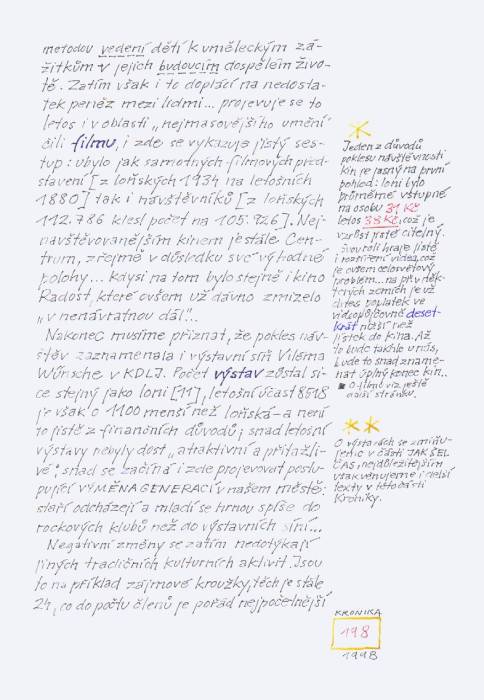 metodou vedení dětí k uměleckým zá-
žitkům v jejich budoucím dospělém živo-
tě. Zatím však i to doplácí na nedosta-
tek peněz mezi lidmi... projevuje se to
letos i v oblasti „nejmasovějšího umění"
čili filmu, i zde se vykazuje jistý ses-
tup: ubylo jak samotných filmových před-
stavení [z loňských 1934 na letošních
1880] tak i návštěvníků [z loňských
112.786 klesl počet na 105.926]. Nej-
navštěvovanějším kinem je stále Cen-
trum, zřejmě v důsledku své výhodné
polohy... Kdysi na tom bylo stejně i kino
Radost, které ovšem už dávno zmizelo
„v nenávratnou dál"...
Nakonec musíme přiznat, že pokles náv-
štěv zaznamenala i výstavní síň Viléma
Wünsche v KDLJ. Počet výstav zůstal si-
ce stejný jako loni [11], letošní účast 8518
je však o 1100 menší než loňská - a není
to jistě z finančních důvodů; snad letošní
výstavy nebyly dost „atraktivní a přitažli-
vé"; snad se začíná i zde projevovat postu-
pující VÝMĚNA GENERACÍ v našem městě:
staří odcházejí a mladí se hrnou spíše do
rockových klubů než do výstavních síní...
Negativní změny se zatím nedotýkají
jiných tradičních kulturních aktivit. Jsou
to na příklad zájmové kroužky, těch je stále
24, co do počtu členů je pořád nejpočetnější
Jeden z důvodů
poklesu návštěvnosti
kin je jasný na první
pohled: loni bylo
průměrné vstupné
na osobu 31 Kč
letos 38 Kč, což je
vzrůst jistě citelný.
Svou roli hraje jistě
i rozšíření videa, což
je ovšem celosvětový
problém... na př. v něk-
terých zemích je už
dnes poplatek ve
videopůjčovně deset-
krát nižší než
lístek do kina. Až
to bude takhle u nás,
bude to snad zname-
nat úplný konec kin...
O filmu viz ještě
další stránku.
O výstavách se zmiňu-
jeme v části JAK ŠEL
ČAS, nejdůležitějším
však věnujeme i delší
texty v této části
Kroniky.
KRONIKA
198
1998